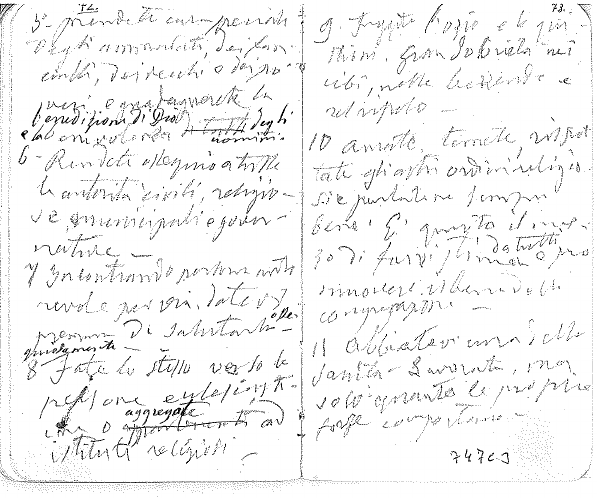 72.
5º prendete cura speciale
degli ammalati, dei fan-
ciulli, dei vecchi e dei po-
veri, e guadagnerete la
benedizione di Dio
e la benevolenza degli
uomini.
6 - Rendete ossequio a tutte
le autorità civili, religio-
se, municipali e gover-
native. -
7 Incontrando persona auto-
revole per via, datevi
premura di salutarla -
8 Fate lo stesso verso le
persone ecclesiasti-
che o aggregate ad
istituti religiosi -
73.
9. Fuggite l'ozio e le qui-
stioni. Gran sobrietà nei
cibi, nelle bevande e
nel riposo -
10 amate, temete, rispet-
tate gli altri ordini religio-
si e parlatene sempre
bene. È questo il mez-
zo di farvi stimare da tutti e pro
muovere il bene della
congregazione -
11 Abbiatevi cura della
sanità - Lavorate, ma
solo quanto le proprie
forze comportano -
747 C J